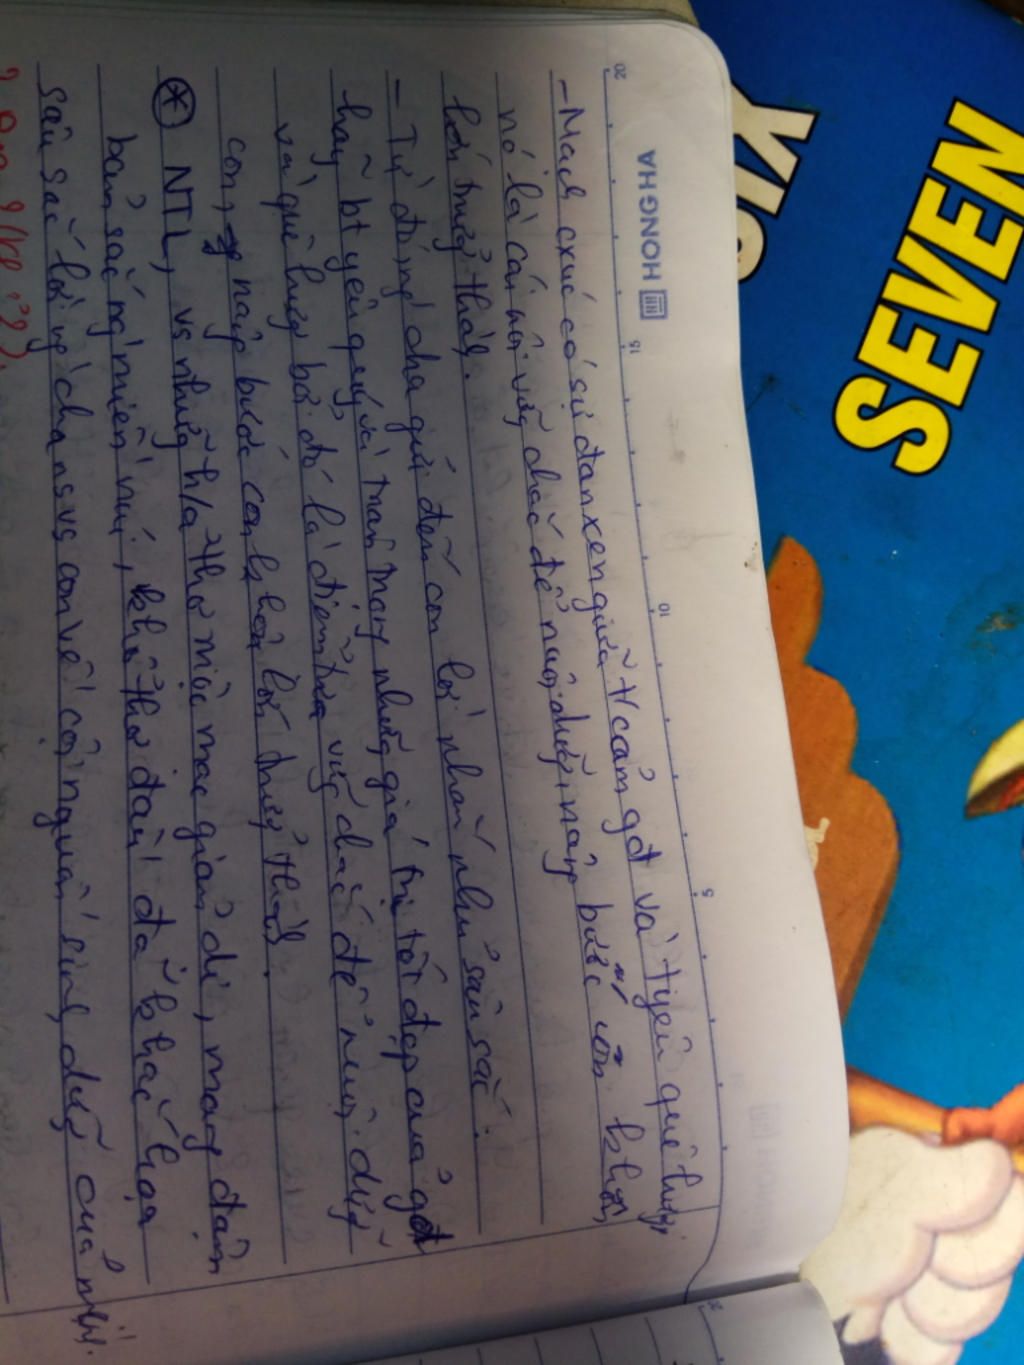 HONG HA
20 15 10 5
- Mạch cxúc có sự đan xen giữa t/cảm gđ và t/yêu quê hương,
nó là cái nôi vững chắc để nuôi dưỡng, nâng bước con khôn,
lớn trưởng thành.
- Từ đó, ng cha gửi đến con lời nhắn nhủ sâu sắc.
hãy bt yêu quý, và trân trọng những giá trị tốt đẹp của gđ
và quê hương bởi đó là điểm tựa vững chắc để nuôi dưỡng
con, nâng bước con khôn lớn trưởng thành.
* NTL, vs những h/a thơ mộc mạc giản dị, mang đậm
bản sắc ng miền núi, khổ thơ đầu đã khắc họa
sâu sắc lời ng cha ns vs con về cội nguồn sinh dưỡng của mình.
SIX
SEVEN